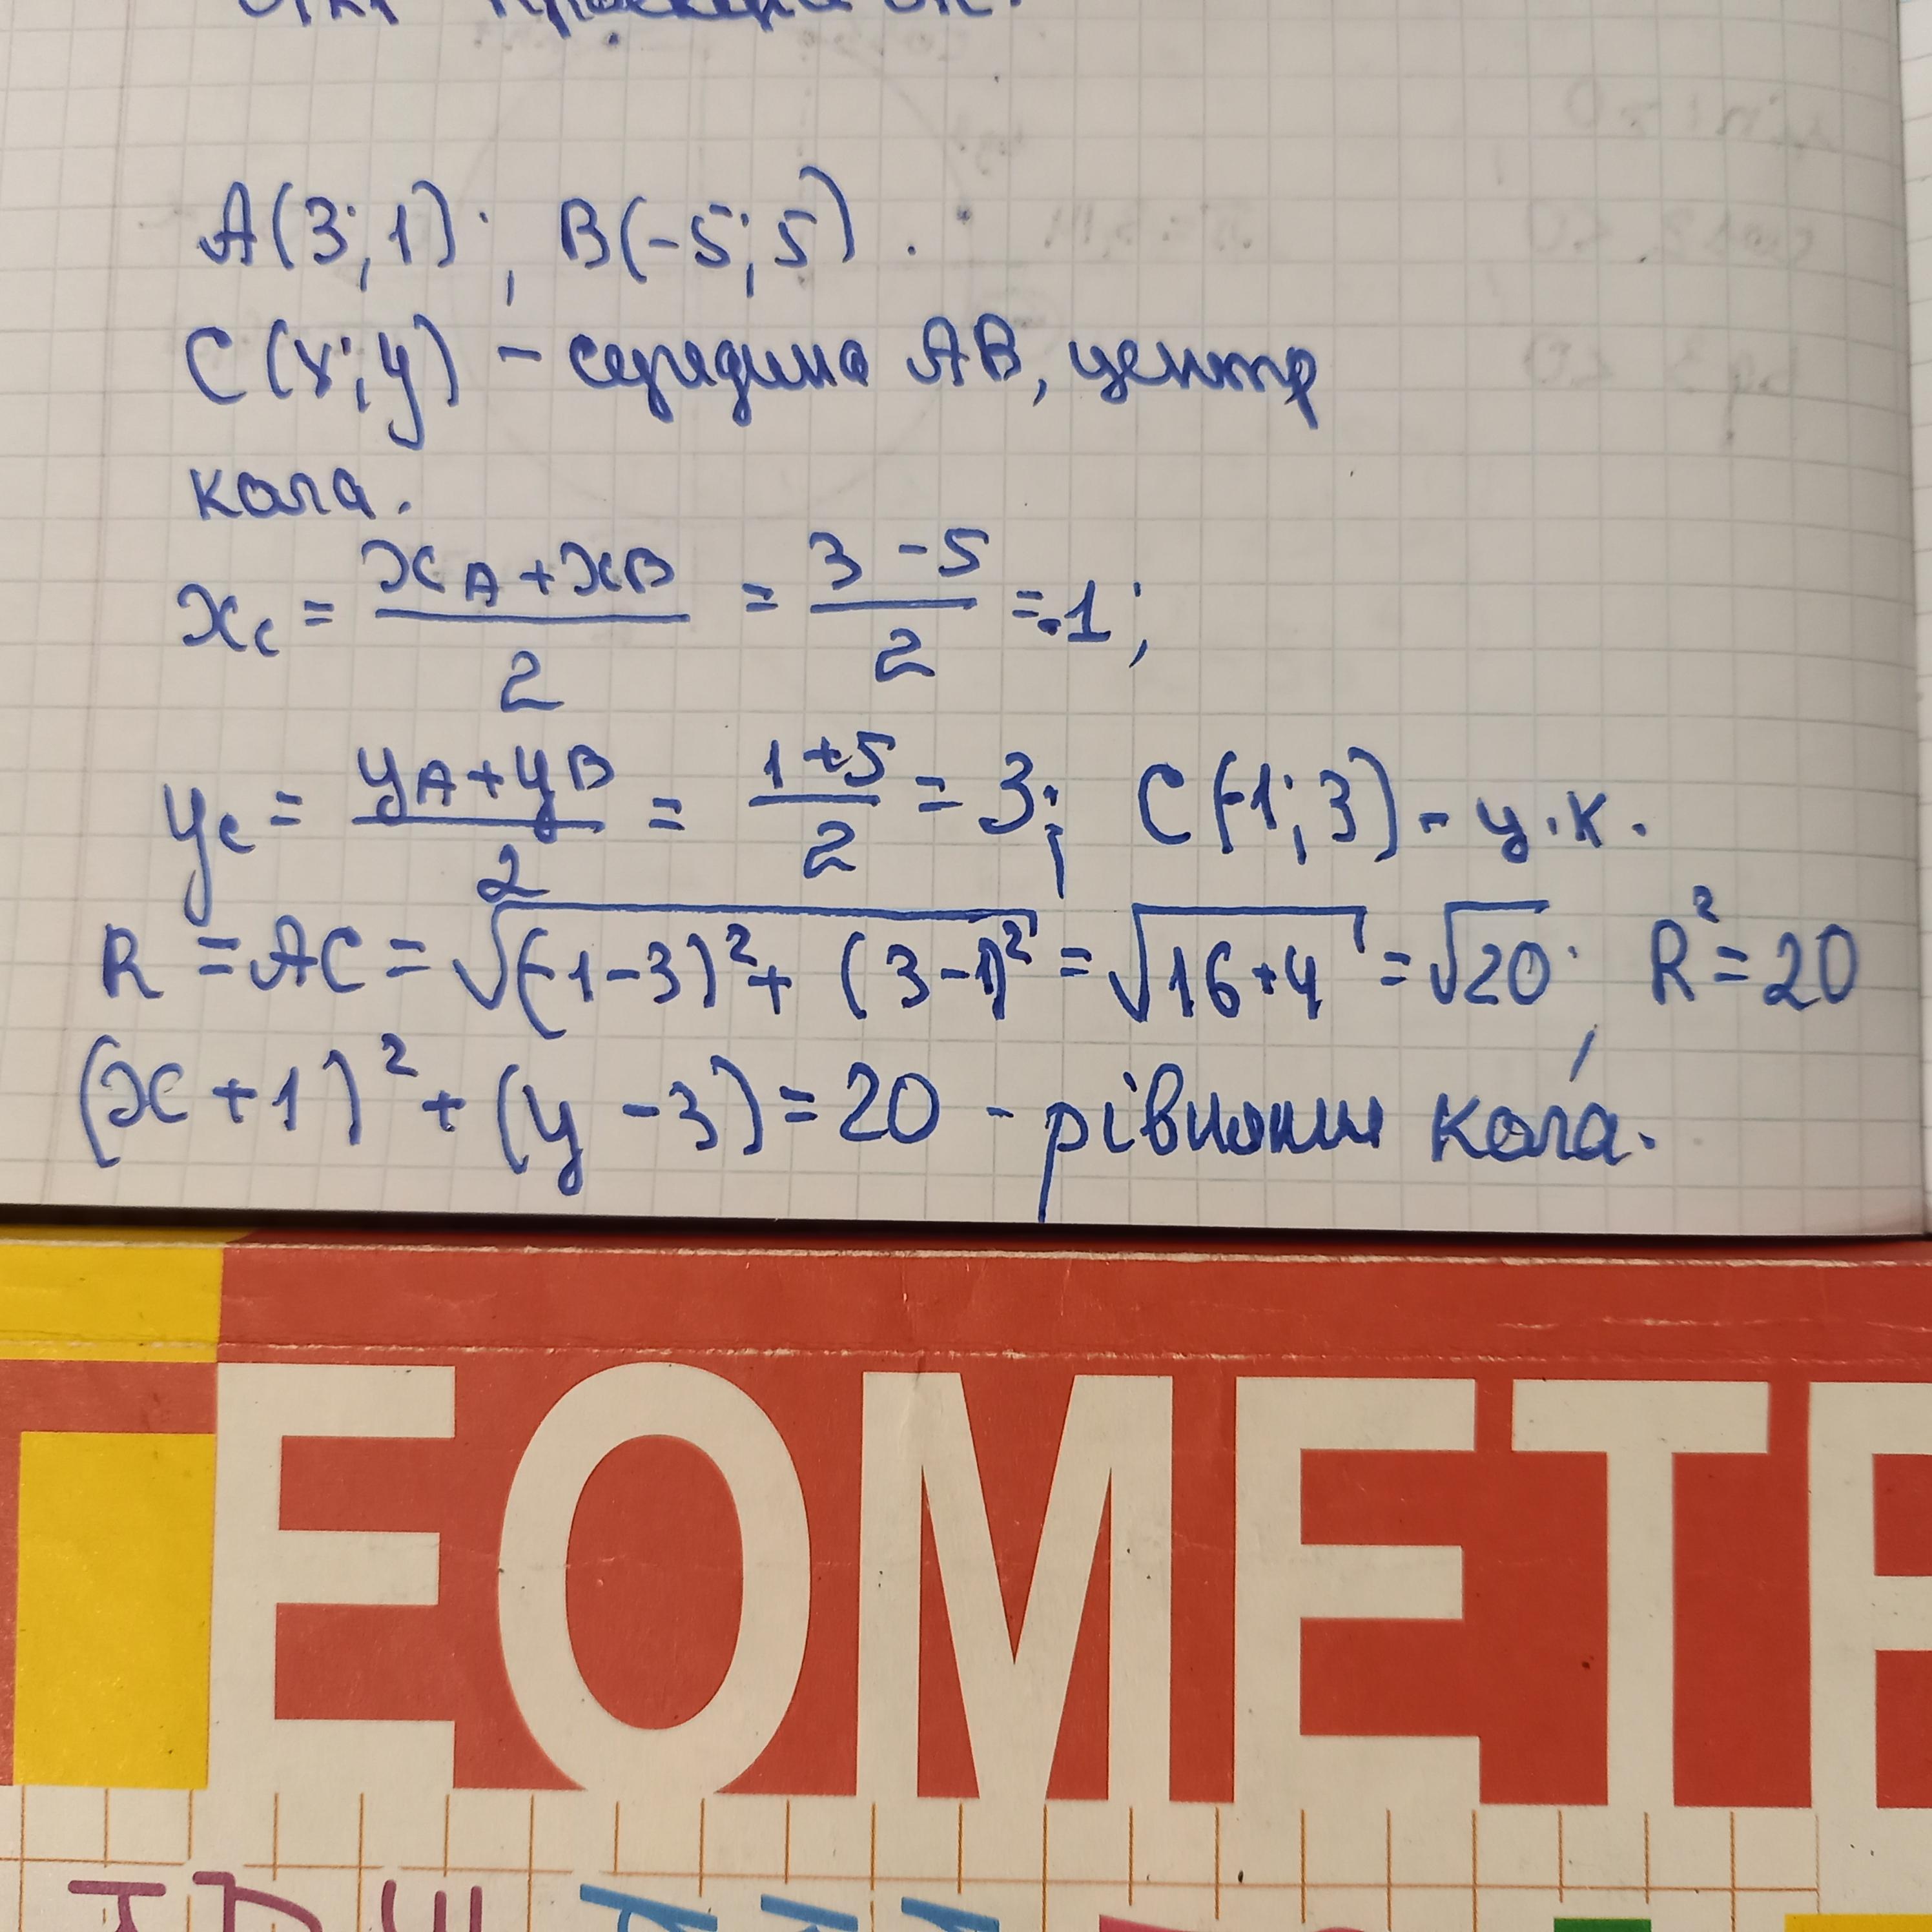 A(3;1); B(-5;5).
C(x;y) - середина AB, центр
кола.
x_C = (x_A + x_B)/2 = (3 - 5)/2 = -1;
y_C = (y_A + y_B)/2 = (1+5)/2 = 3; C(-1;3) - ц.к.
R = AC = √((-1-3)² + (3-1)²) = √(16+4) = √20; R² = 20
(x+1)² + (y-3) = 20 - рівняння кола.
ЕОМЕТ